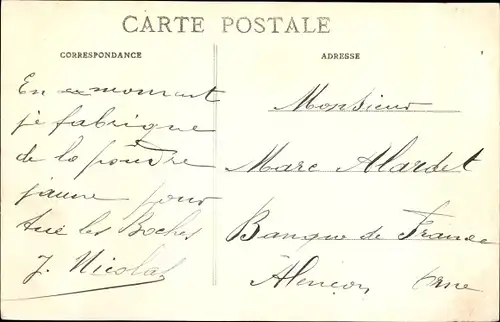 CARTE POSTALE
CORRESPONDANCE
ADRESSE
En ce moment
je fabrique
de la poudre
jaune pour
tué les Boches
J. Nicolas
Monsieur
Marc Alardet
Banque de France
Alençon Orne